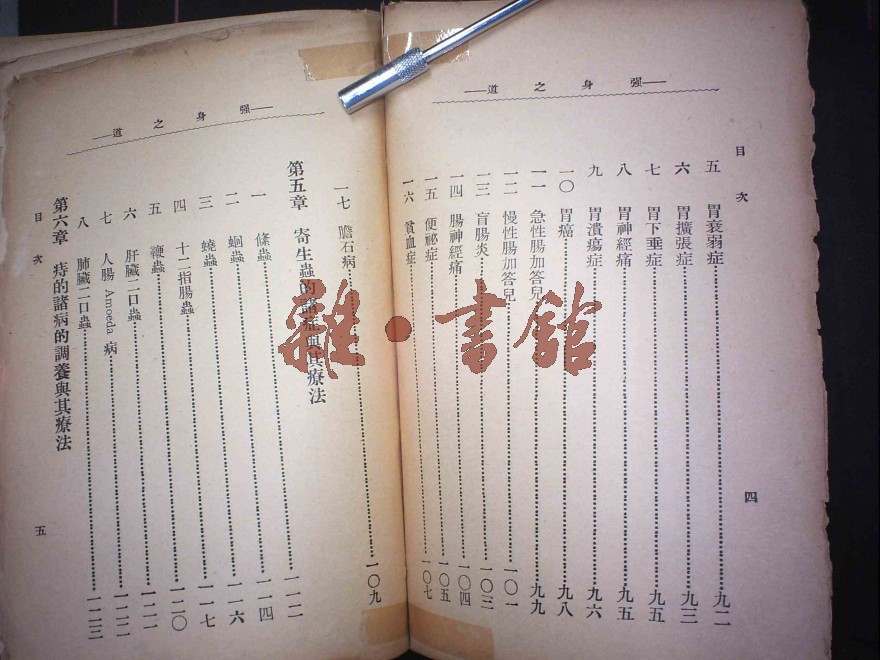 —强身之道—
目次
五 胃衰弱症 九二
六 胃擴張症 九三
七 胃下垂症 九五
八 胃神經痛 九五
九 胃潰瘍症 九六
一〇 胃癌 九八
一一 急性腸加答兒 九九
一二 慢性腸加答兒 一〇一
一三 盲腸炎 一〇三
一四 腸神經痛 一〇四
一五 便祕症 一〇五
一六 貧血症 一〇七
四
—强身之道—
一七 膽石病 一〇九
第五章 寄生蟲的諸症與其療法
一 條蟲 一一二
二 蛔蟲 一一四
三 蟯蟲 一一六
四 十二指腸蟲 一一七
五 鞭蟲 一二〇
六 肝臟二口蟲 一二一
七 人腸 Amoeda 病 一二二
八 肺臟二口蟲 一二三
第六章 痔的諸病的調養與其療法
目次
五
雜·書館